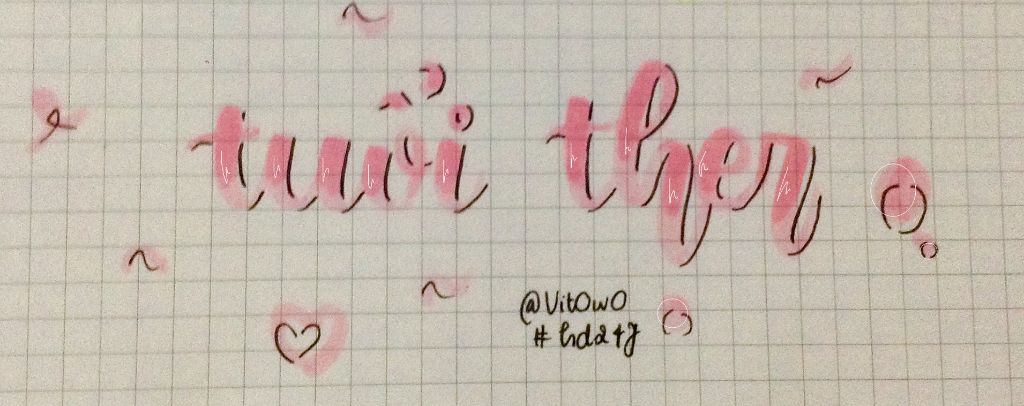 tuổi thơ
@VitOwO
#hd247